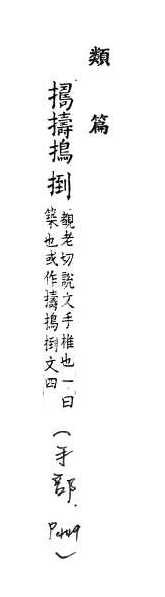 類篇
擣搗捯
覩老切說文手椎也一曰
築也或作擣搗捯文四
(手部. P449)